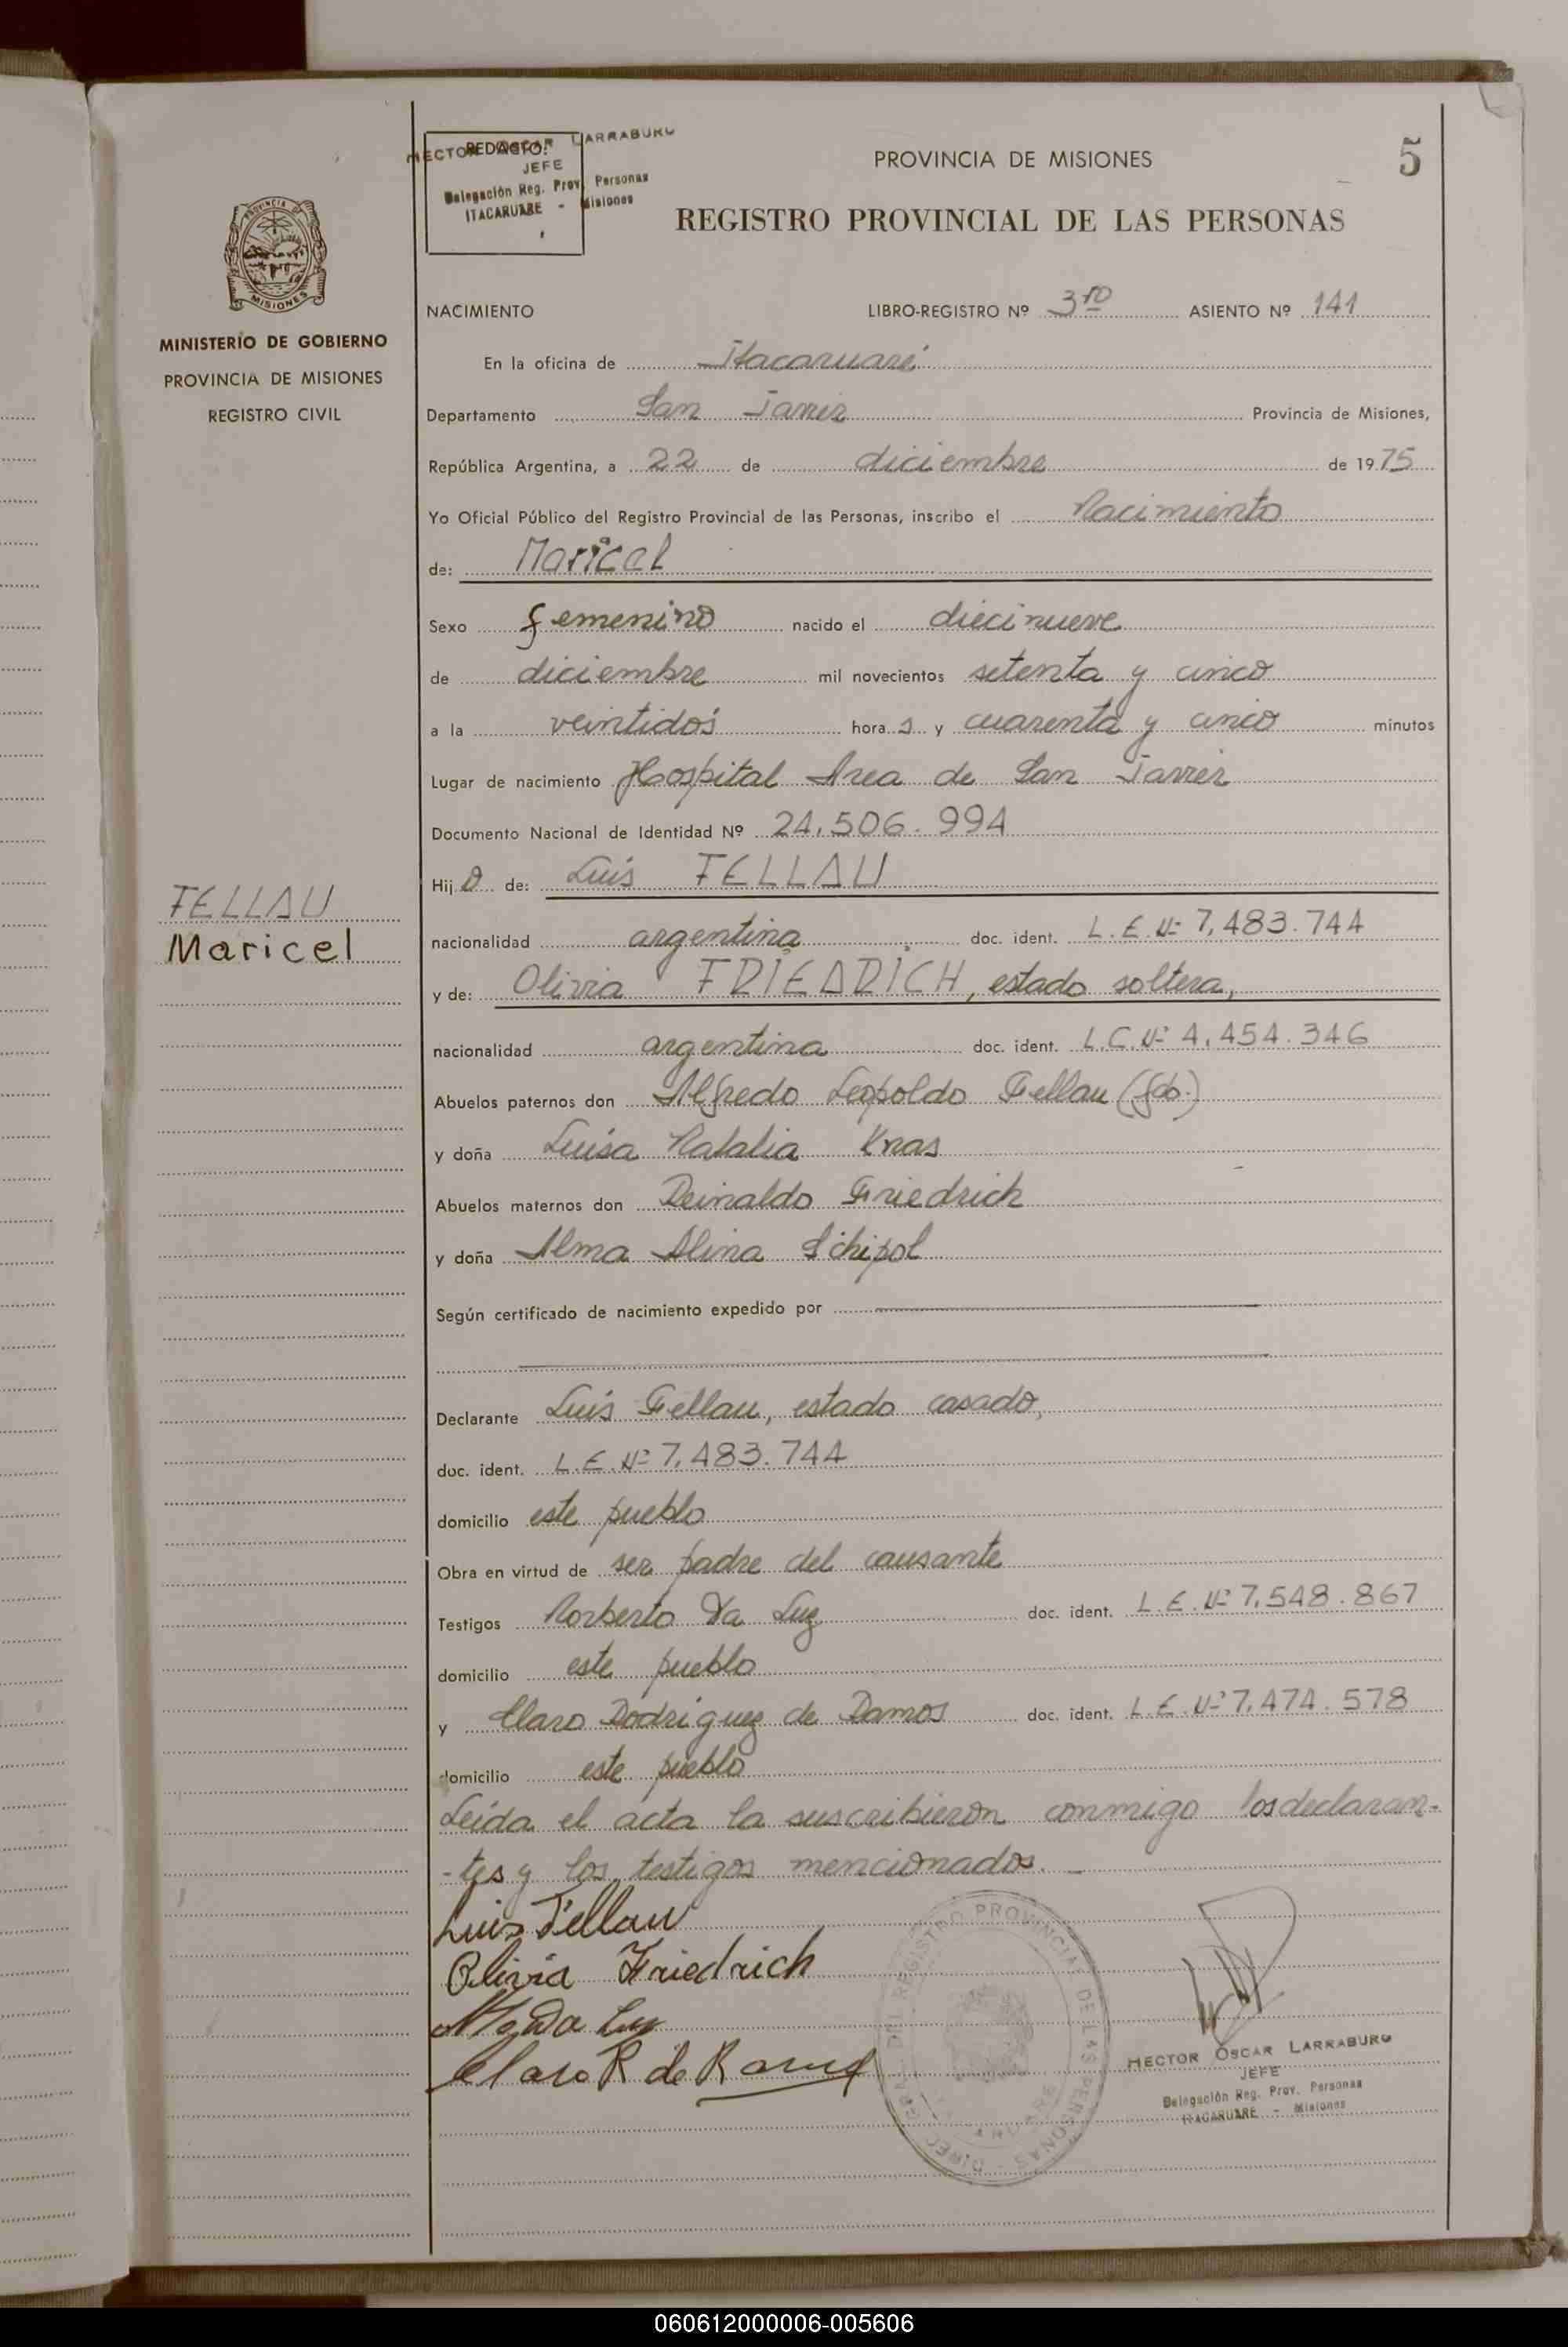 HECTOR OSCAR LARRABURU
REDACTO:
JEFE
Delegación Reg. Prov. Personas
ITACARUARE - Misiones
PROVINCIA DE MISIONES
5
REGISTRO PROVINCIAL DE LAS PERSONAS
PROVINCIA DE
MISIONES
MINISTERIO DE GOBIERNO
PROVINCIA DE MISIONES
REGISTRO CIVIL
NACIMIENTO LIBRO-REGISTRO Nº 3ro ASIENTO Nº 141
En la oficina de Itacaruaré
Departamento San Javier Provincia de Misiones,
República Argentina, a 22 de diciembre de 1975
Yo Oficial Público del Registro Provincial de las Personas, inscribo el Nacimiento
de: Maricel
Sexo femenino nacido el diecinueve
de diciembre mil novecientos setenta y cinco
a la veintidós hora s y cuarenta y cinco minutos
Lugar de nacimiento Hospital Area de San Javier
Documento Nacional de Identidad Nº 24.506.994
Hij a de: Luis FELLAU
FELLAU
Maricel
nacionalidad argentina doc. ident. L.E.Nº 7.483.744
y de: Olivia FRIEDRICH, estado soltera,
nacionalidad argentina doc. ident. L.C.Nº 4.454.346
Abuelos paternos don Alfredo Leopoldo Fellau (fdo.)
y doña Luisa Natalia Knas
Abuelos maternos don Reinaldo Friedrich
y doña Alma Alina Schipol
Según certificado de nacimiento expedido por
Declarante Luis Fellau, estado casado,
doc. ident. L.E.Nº 7.483.744
domicilio este pueblo
Obra en virtud de ser padre del causante
Testigos Norberto Da Luz doc. ident. L.E.Nº 7.548.867
domicilio este pueblo
y Claro Rodriguez de Ramos doc. ident. L.E.Nº 7.474.578
domicilio este pueblo
Leida el acta la suscribieron conmigo los declaran-
-tes y los testigos mencionados.
Luis Fellau
Olivia Friedrich
Da Luz
Claro R de Ramos
DIREC. GRAL. DEL REGISTRO PROVINCIAL DE LAS PERSONAS
HECTOR OSCAR LARRABURU
JEFE
Delegación Reg. Prov. Personas
ITACARUARE - Misiones
060612000006-005606